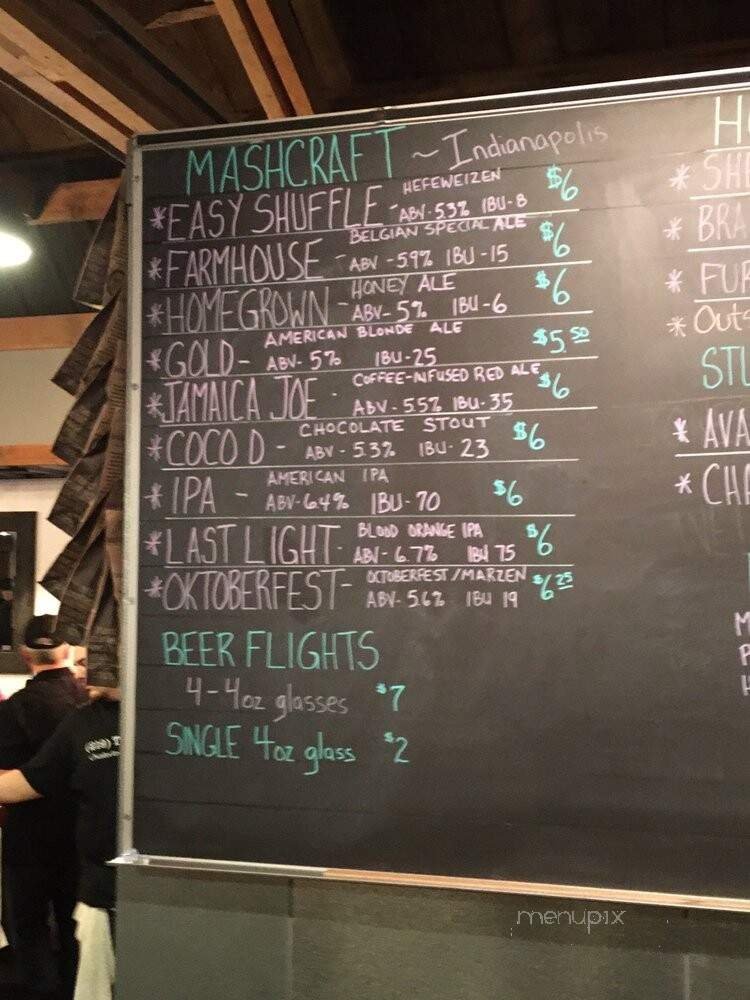 MASHCRAFT ~ Indianapolis
* EASY SHUFFLE - HEFEWEIZEN $6
ABV-5.3% IBU-8
* FARMHOUSE - BELGIAN SPECIAL ALE $6
ABV-5.9% IBU-15
* HOMEGROWN - HONEY ALE $6
ABV-5% IBU-6
* GOLD - AMERICAN BLONDE ALE $5.50
ABV-5% IBU-25
* JAMAICA JOE - COFFEE-INFUSED RED ALE $6
ABV-5.5% IBU-35
* COCO D - CHOCOLATE STOUT $6
ABV-5.3% IBU-23
* IPA - AMERICAN IPA $6
ABV-6.4% IBU-70
* LAST LIGHT - BLOOD ORANGE IPA $6
ABV-6.7% IBU 75
* OKTOBERFEST - OCTOBERFEST/MARZEN $6.25
ABV-5.6% IBU 19
BEER FLIGHTS
4-4oz glasses $7
SINGLE 4oz glass $2
H
* SH
* BRA
* FU
* Outs
STU
* AVA
* CH
menupix